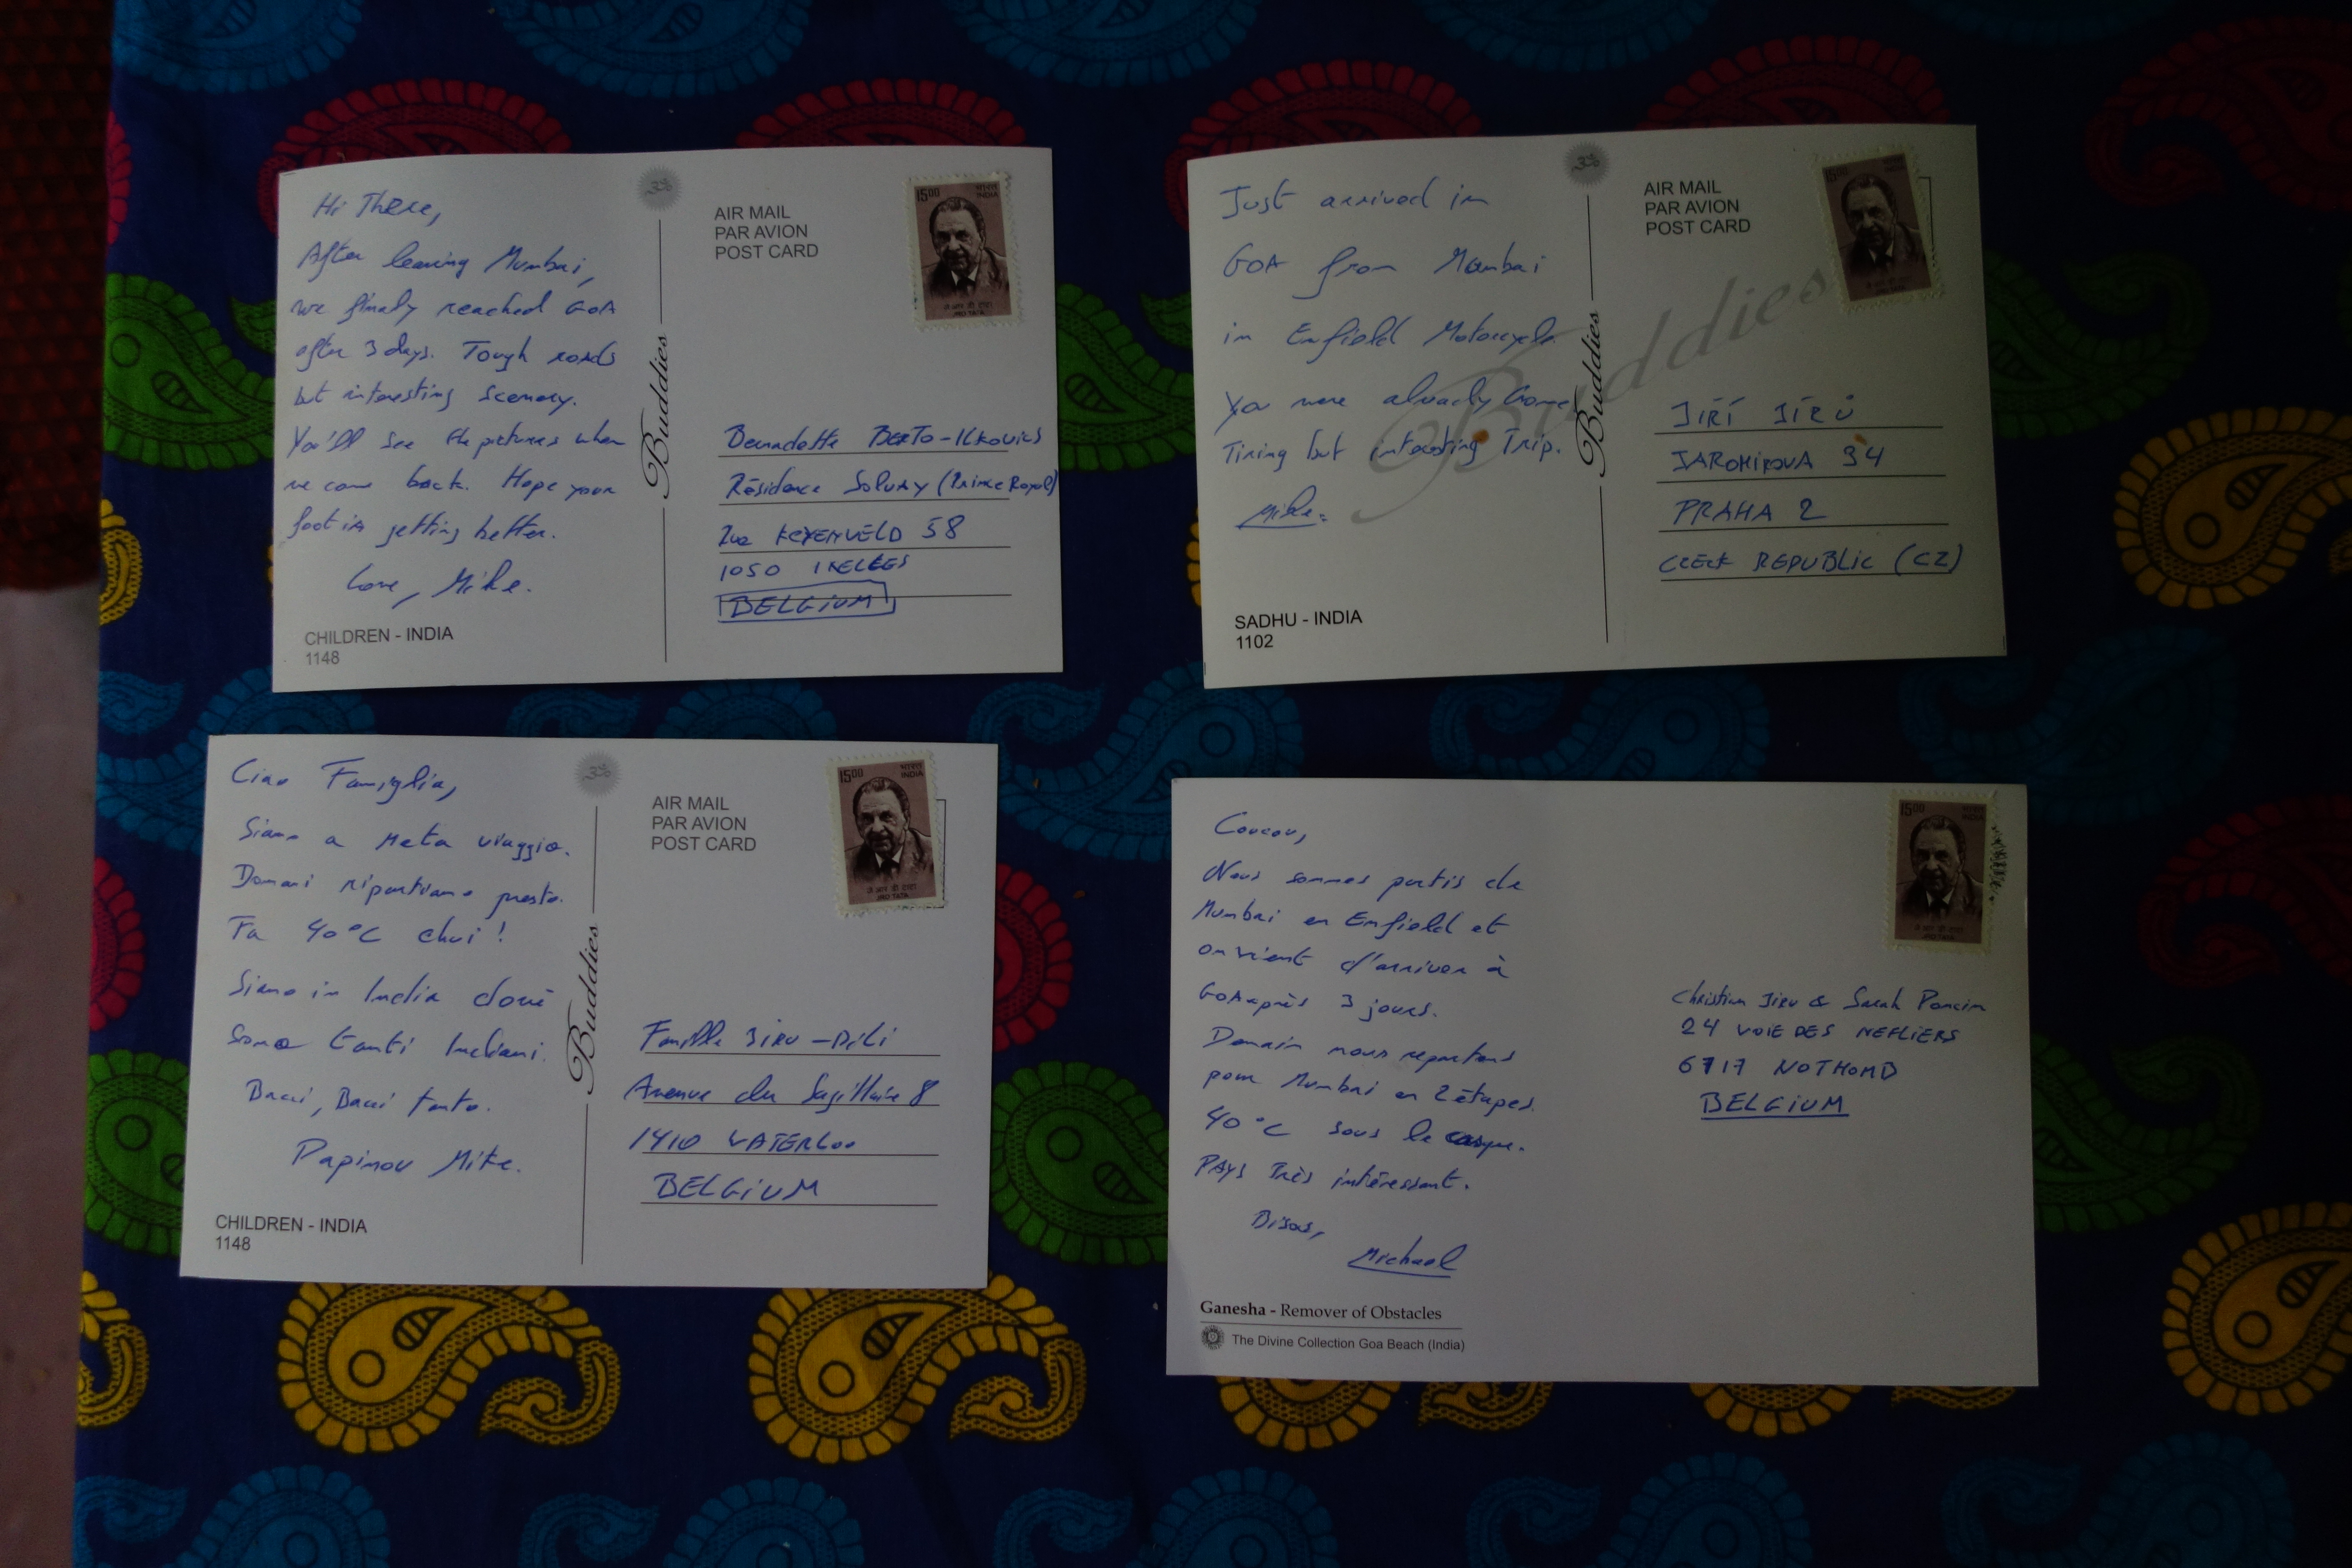 Hi There,
After leaving Mumbai,
we finaly reached GOA
after 3 days. Tough roads
but interesting scenery.
You'll see the pictures when
we come back. Hope your
foot is getting better.
Love, Mike.
CHILDREN - INDIA
1148
Buddies
AIR MAIL
PAR AVION
POST CARD
15.00 भारत
INDIA
JRD TATA
Bernadette BERTO-Ilkovics
Résidence Solvay (Prince Royal)
Rue KEYENVELD 58
1050 IXELLES
BELGIUM
Just arrived in
GOA from Mumbai
in Enfield Motorcycle
You were already
Tiring but interesting Trip.
Mike.
SADHU - INDIA
1102
Buddies
Buddies
AIR MAIL
PAR AVION
POST CARD
15.00
JIŘÍ JÍRŮ
JAROMIROVA 34
PRAHA 2
CZECK REPUBLIC (CZ)
Ciao Famiglia,
Siamo a Meta viaggio.
Domani ripartiamo presto.
Fa 40°C chui!
Siamo in India dove
sono tanti Indiani.
Bacci, Bacci tanto.
Papinou Mike.
CHILDREN - INDIA
1148
Buddies
AIR MAIL
PAR AVION
POST CARD
15.00 भारत
INDIA
JRD TATA
Famille JIRU -
Avenue du Sagittaire 8
1410 WATERLOO
BELGIUM
Coucou,
Nous sommes partis de
Mumbai en Enfield et
on vient d'arriver à
GOA après 3 jours.
Demain nous repartons
pour Mumbai en 2 étapes.
40°C sous le casque.
PAYS Très intéressant.
Bisous,
Michael
Ganesha - Remover of Obstacles
The Divine Collection Goa Beach (India)
15.00 भारत
INDIA
JRD TATA
Christian Jiru & Sarah Poncin
24 VOIE DES NEFLIERS
6717 NOTHOMB
BELGIUM